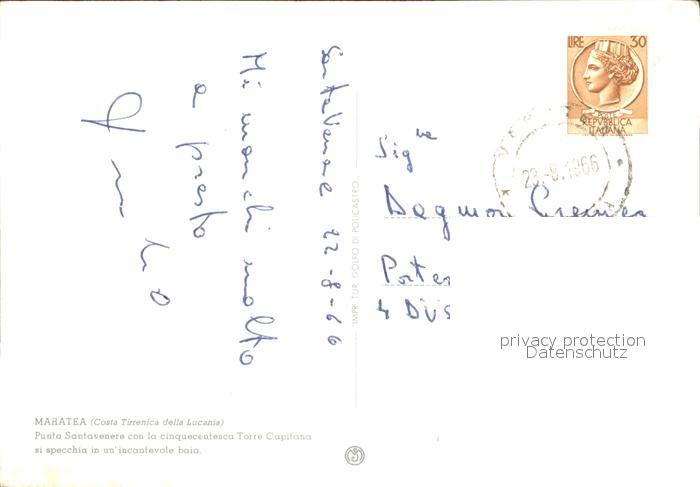 Santavenere 22-8-66
Mi manchi molto
a presto
LIRE 30
POSTE
REPVBBLICA
ITALIANA
23.-8.1966
Sig.na
Dagmar
4 DÜS
privacy protection
Datenschutz
"IMPR. TUR. GOLFO DI POLICASTRO
MARATEA (Costa Tirrenica della Lucania)
Punta Santavenere con la cinquecentesca Torre Capitana
si specchia in un'incantevole baia.